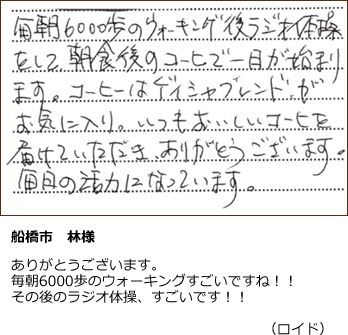 毎朝6000歩のウォーキング後ラジオ体操
をして、朝食後のコーヒーで一日が始まり
ます。コーヒーはゲイシャブレンド、が
お気に入り。いつもおいしいコーヒーを
届けていただき、ありがとうございます。
毎日の活力になっています。
船橋市 林様
ありがとうございます。
毎朝6000歩のウォーキングすごいですね！！
その後のラジオ体操、すごいです！！
（ロイド）